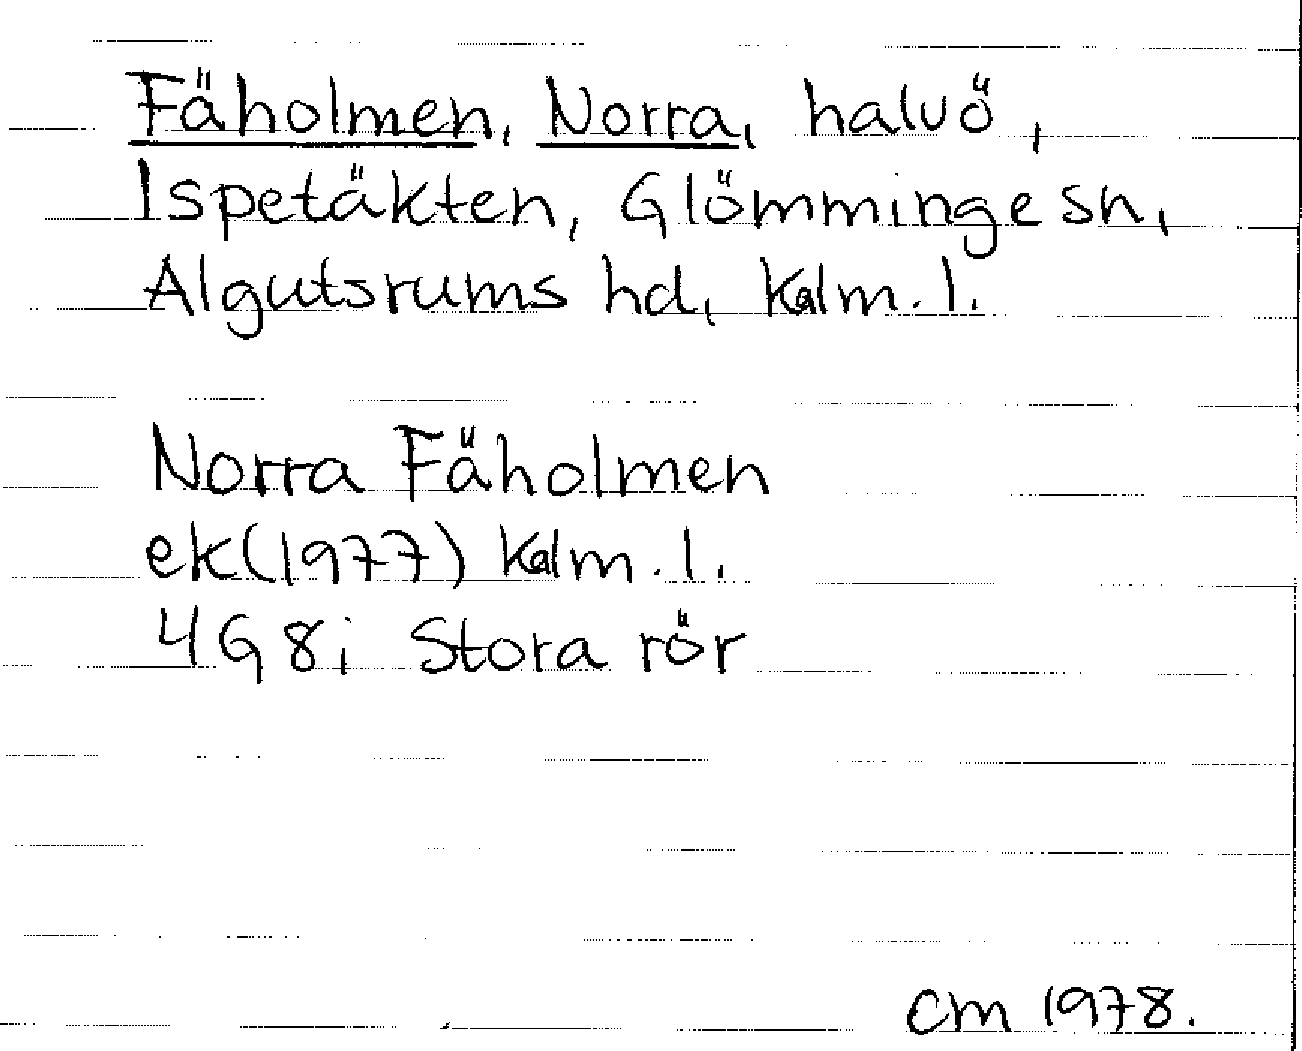 Fäholmen, Norra, halvö,
Ispetäkten, Glömminge sn,
Algutsrums hd, Kalm. l.
Norra Fäholmen
ek(1977) Kalm. l.
4G 8i Stora rör
cm 1978.